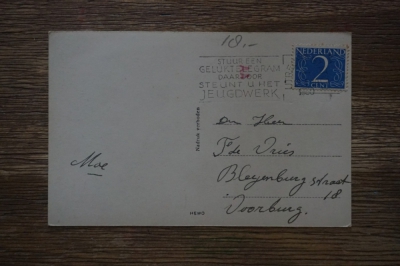 10.-
STUUR EEN
GELUKSTELEGRAM
DAARDOOR
STEUNT U HET
JEUGDWERK
NEDERLAND
2
CENT
Den Heer
F de Vries
Bleyenburgstraat
18.
Voorburg.
Moe
Nadruk verboden